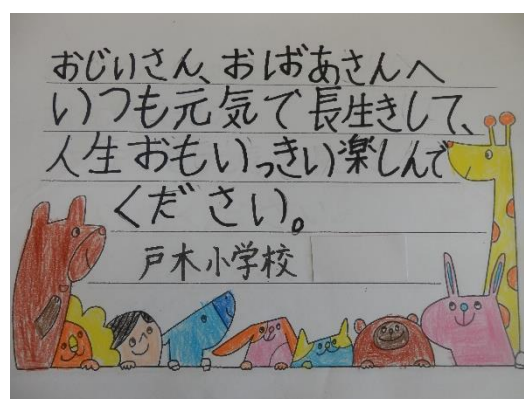 おじいさん、おばあさんへ
いつも元気で長生きして、
人生おもいっきい楽しんで
ください。
戸木小学校